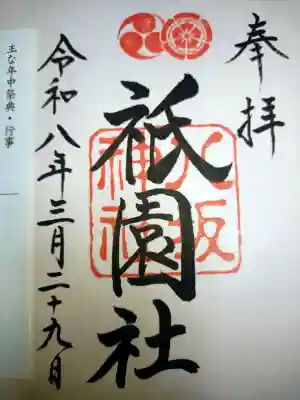 奉拝
八坂神社
祇園社
令和八年三月二十九日
主な年中祭典・行事